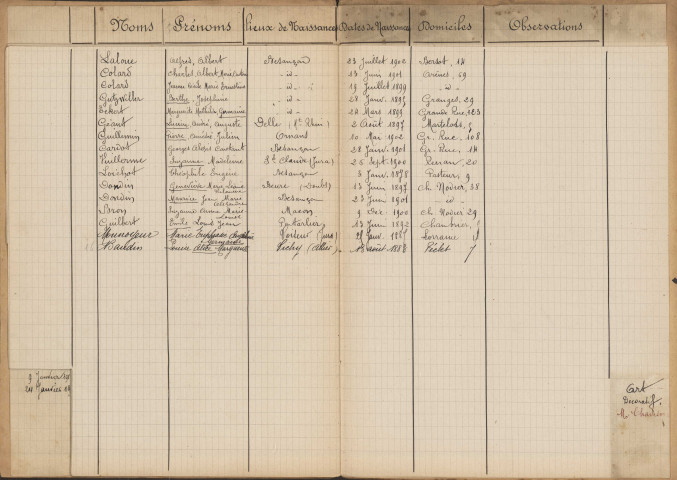 Noms Prénoms Lieux de Naissance Dates de Naissance Domiciles Observations
Laloue Alfred, Albert Besançon 23 Juillet 1902 Bersot, 18
Colard Charles Albert Marie -id- 13 Juin 1901 Arènes, 69
Colard Jeanne Marie -id- 19 Juillet 1899 -id-
Gutzwiller Berthe, Joséphine -id- 28 Janv. 1895 Granges, 29
Eckert Marguerite Mathilde Germaine -id- 20 Mars 1899 Grande Rue, 123
Géant Lucien, André, Auguste Delle (Ht Rhin) 2 Août 1897 Martelots, 5
Guillemin Pierre, Amédée, Julien Ornans 30 Mai 1902 Gr. Rue, 108
Cardot Georges Alexis Constant Besançon 28 Janv. 1901 Gr. Rue, 14
Vuillerme Suzanne Madeleine St Claude (Jura) 25 Sept. 1900 Ronan, 20
Lorchot Théophile Eugène Besançon 3 Janv. 1878 Pasteur, 9
Dondin Geneviève Marie Louise Beure (Doubs) 13 Juin 1897 Ch. Nodier, 38
Dondin Maurice Jean Marie Alexandre Besançon 23 Juin 1901 -id-
Bron Suzanne Anna Marie Louise Macon 9 Déc. 1900 Ch. Nodier 29
Guilbert Emile Louis Jean Pontarlier 13 Juin 1892 Chambrier,
Monnoyeur Marie (Jura) Janv. Lorraine
Baudin Lucie Marguerite Vichy (Allier) 13 août 1888 Piclet 7
9 Janvier
Janvier
Art
Décoratif.
M.